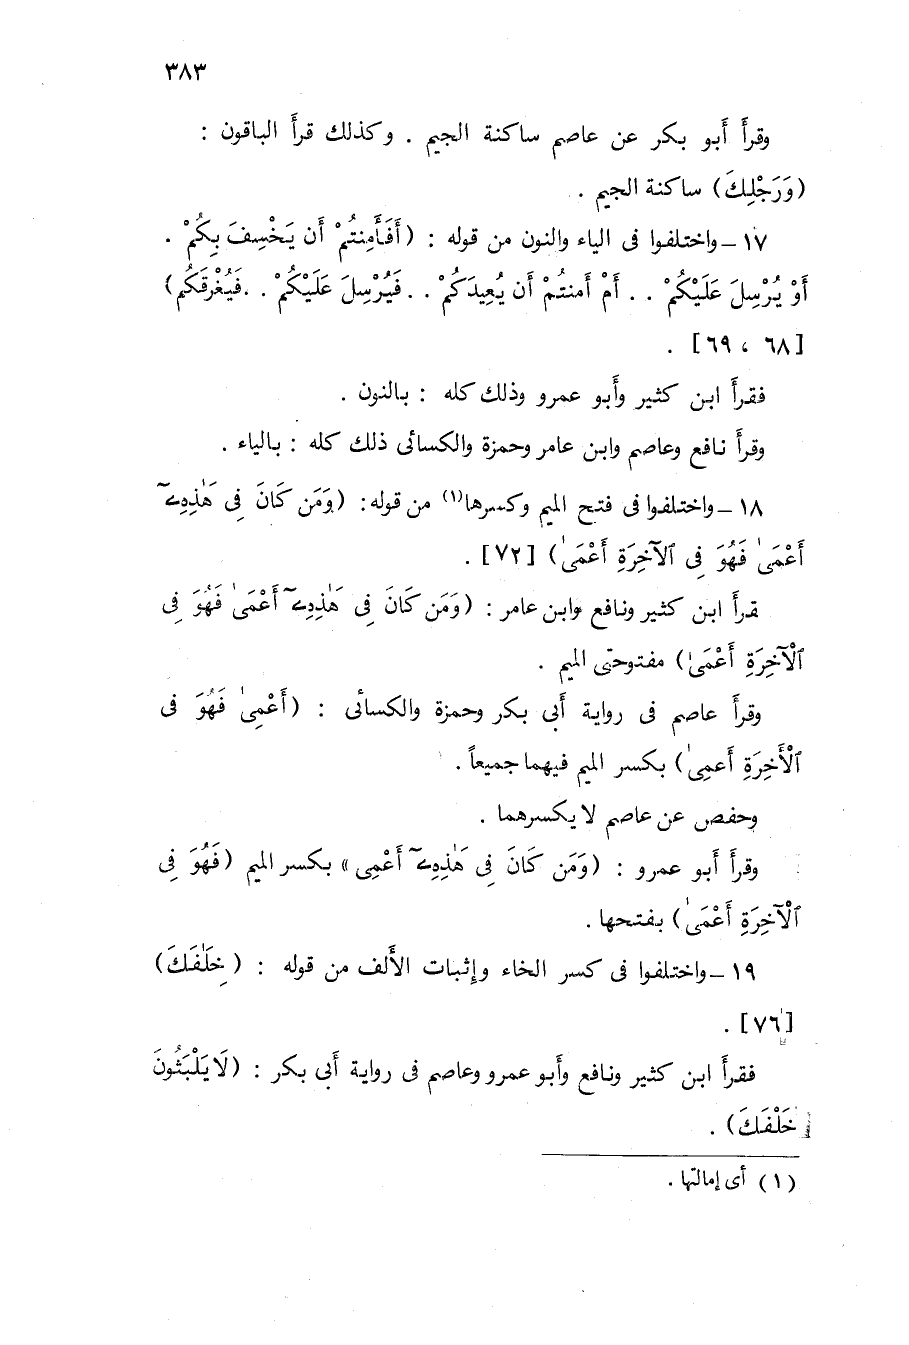 ٣٨٣
وقرأ أبو بكر عن عاصم ساكنة الجيم . وكذلك قرأ الباقون :
(وَرَجْلِكَ) ساكنة الجيم .
١٧ – واختلفوا فى الياء والنون من قوله : (أَفَأَمِنتُمْ أَن يَخْسِفَ بِكُمْ .
أَوْ يُرْسِلَ عَلَيْكُمْ . . أَمْ أَمنتُمْ أَن يُعِيدَكُمْ . . فَيُرْسِلَ عَلَيْكُمْ . . فَيُغْرِقَكُم)
[٦٨ ، ٦٩] .
فقرأ ابن كثير وأبو عمرو وذلك كله : بالنون .
وقرأ نافع وعاصم وابن عامر وحمزة والكسائى ذلك كله : بالياء .
١٨ – واختلفوا فى فتح الميم وكسرها(١) من قوله : (وَمَن كَانَ فِى هَٰذِهِۦٓ
أَعْمَىٰ فَهُوَ فِى ٱلْآخِرَةِ أَعْمَىٰ) [٧٢] .
قرأ ابن كثير ونافع وابن عامر : (وَمَن كَانَ فِى هَٰذِهِۦٓ أَعْمَىٰ فَهُوَ فِى
ٱلْآخِرَةِ أَعْمَىٰ) مفتوحتى الميم .
وقرأ عاصم فى رواية أبى بكر وحمزة والكسائى : (أَعْمِىٰ فَهُوَ فى
ٱلْأَخِرَةِ أَعمِىٰ) بكسر الميم فيهما جميعاً .
وحفص عن عاصم لا يكسرهما .
وقرأ أبو عمرو : (وَمَن كَانَ فِى هَٰذِهِۦٓ أَعْمِى» بكسر الميم (فَهُوَ فِى
ٱلْآخِرَةِ أَعْمَىٰ) بفتحها .
١٩ – واختلفوا فى كسر الخاء وإثبات الألف من قوله : (خِلَٰفَكَ)
[٧٦] .
فقرأ ابن كثير ونافع وأبو عمرو وعاصم فى رواية أبى بكر : (لَا يَلْبَثُونَ
خَلْفَكَ) .
(١) أى إمالتها .